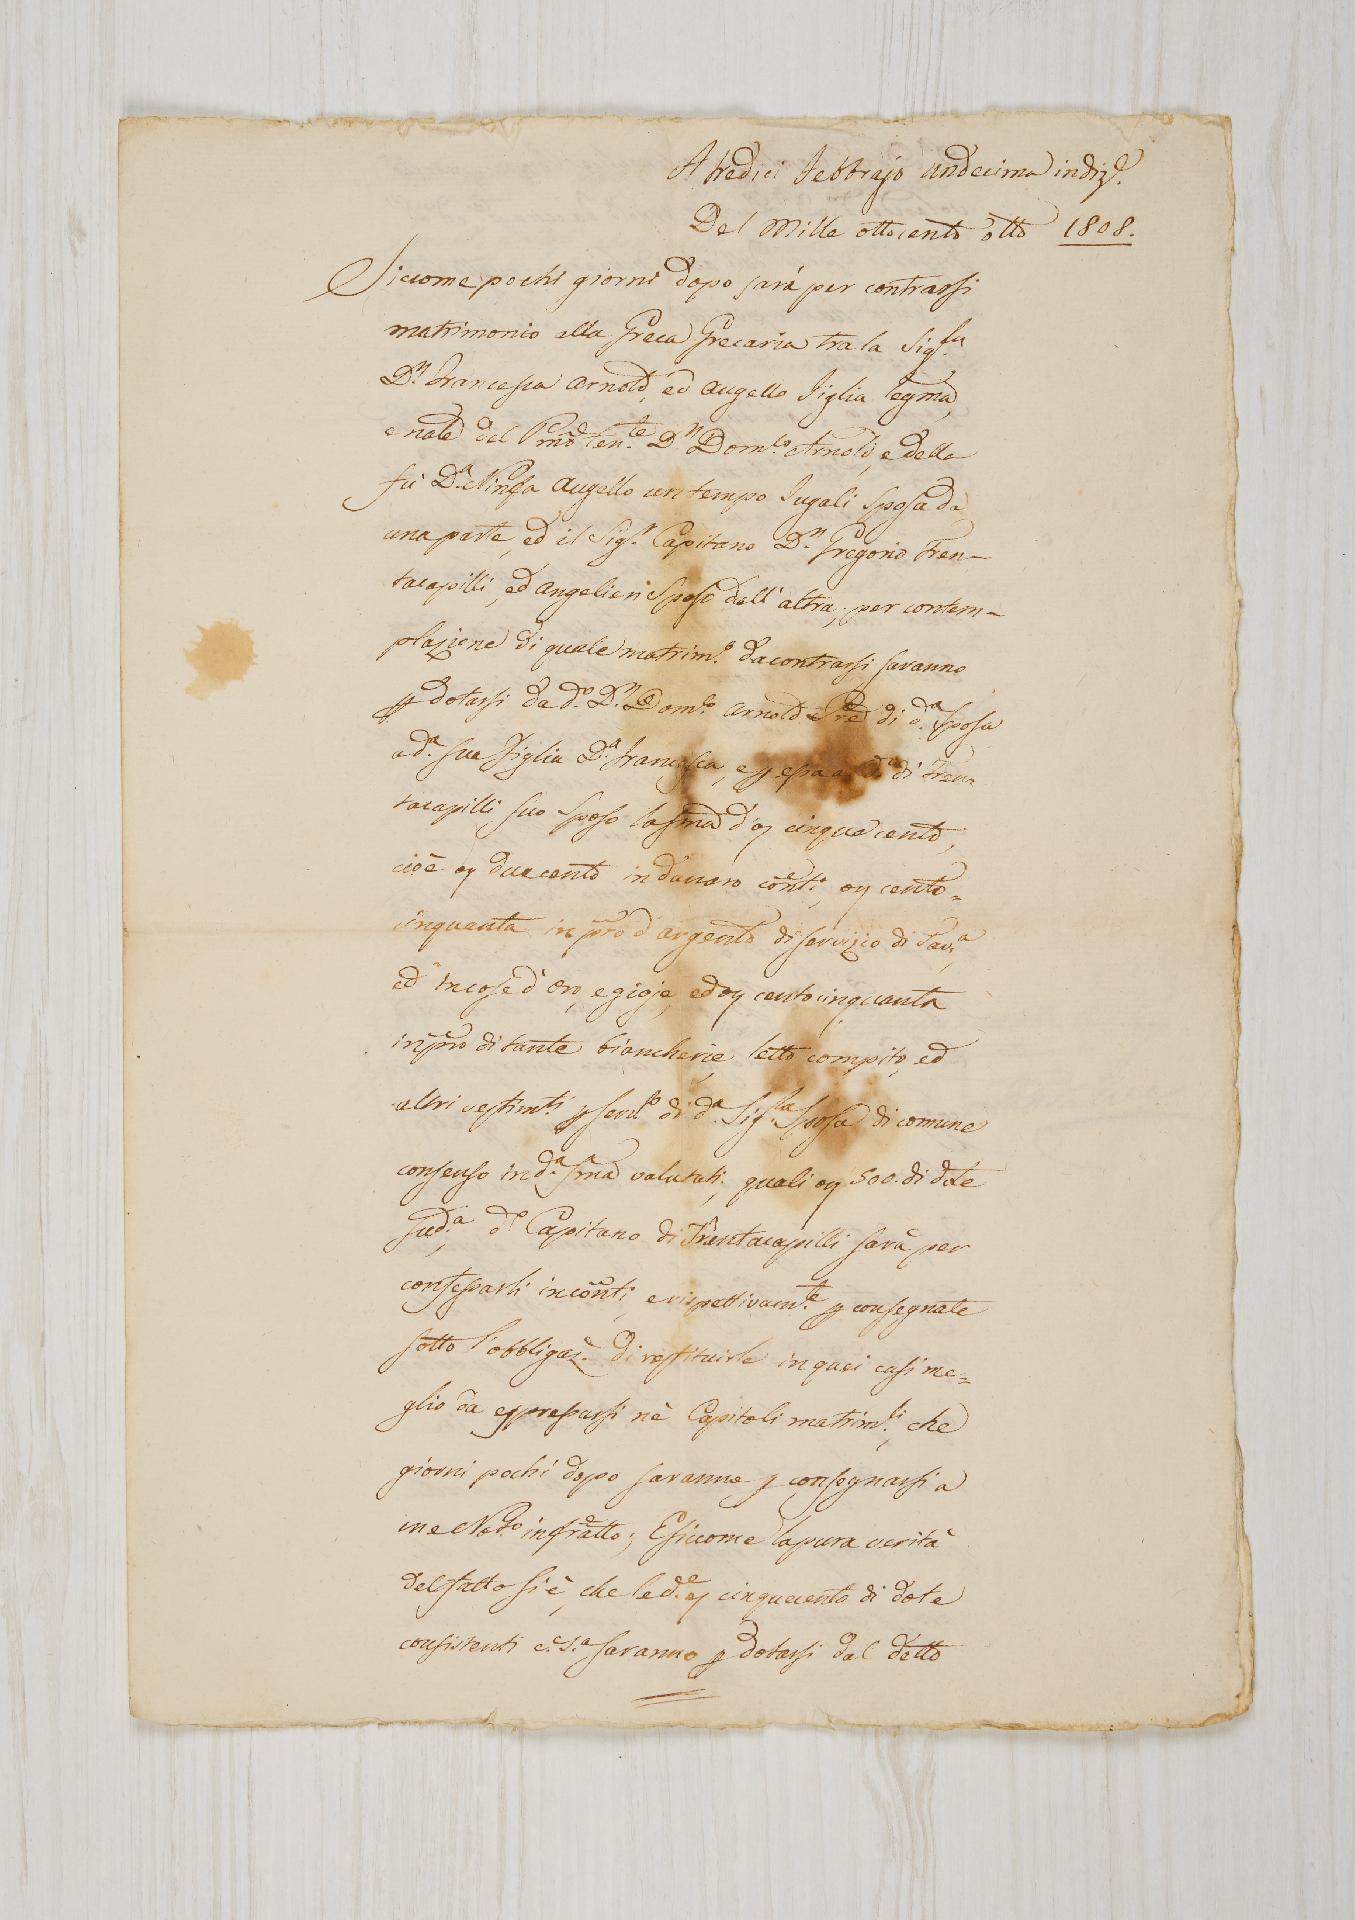 A tredici Febbrajo undecima indiz.e
Del Mille ottocento otto 1808.
Siccome pochi giorni dopo sarà per contrarsi
matrimonio alla Greca Grecaria tra la Sig.ra
D.n Francesca Arnold, ed Augello Figlia legma,
e nale del Ten.te D.n Dom.co Arnold, e della
fù D.a Ninfa Augello un tempo Jugali Sposa da
una parte, ed il Sig.r Capitano D.n Gregorio Tren-
tacapilli, ed Angelieri Sposo dell'altra, per contem-
plazione di quale matrim.o da contrarsi saranno
p dotarsi da d.o D.n Dom.co Arnold Pre di d.a Sposa
a d.a sua Figlia D.a Francesca, e p essa a di Tren-
tacapilli suo Sposo la sma d'oz cinquecento,
cioè oz duecento in danaro conti, oz cento-
cinquanta in pro d'argento di servizio di Tav.a,
ed in cose d'oro, e gioje, ed oz centocinquanta
in pro di tante biancherie, letto compito, ed
altri vestim.ti p serv.o di d.a Sig.ra Sposa di comune
consenso in d.a sma valutati, quali oz 500. di dote
sud.a, d.o Capitano di Trentacapilli sarà per
confessarli in conti, e rispettivam.te p consegnate
sotto l'obbligaz.e di restituirle in quei casi me-
glio da espressarsi nè Capitoli matrim.li, che
giorni pochi dopo saranno p consegnarsi a
me Not.o infratto; E siccome la pura verità
del fatto si è, che le d.e oz cinquecento di dote
consistenti c.e s.a saranno p dotarsi dal detto